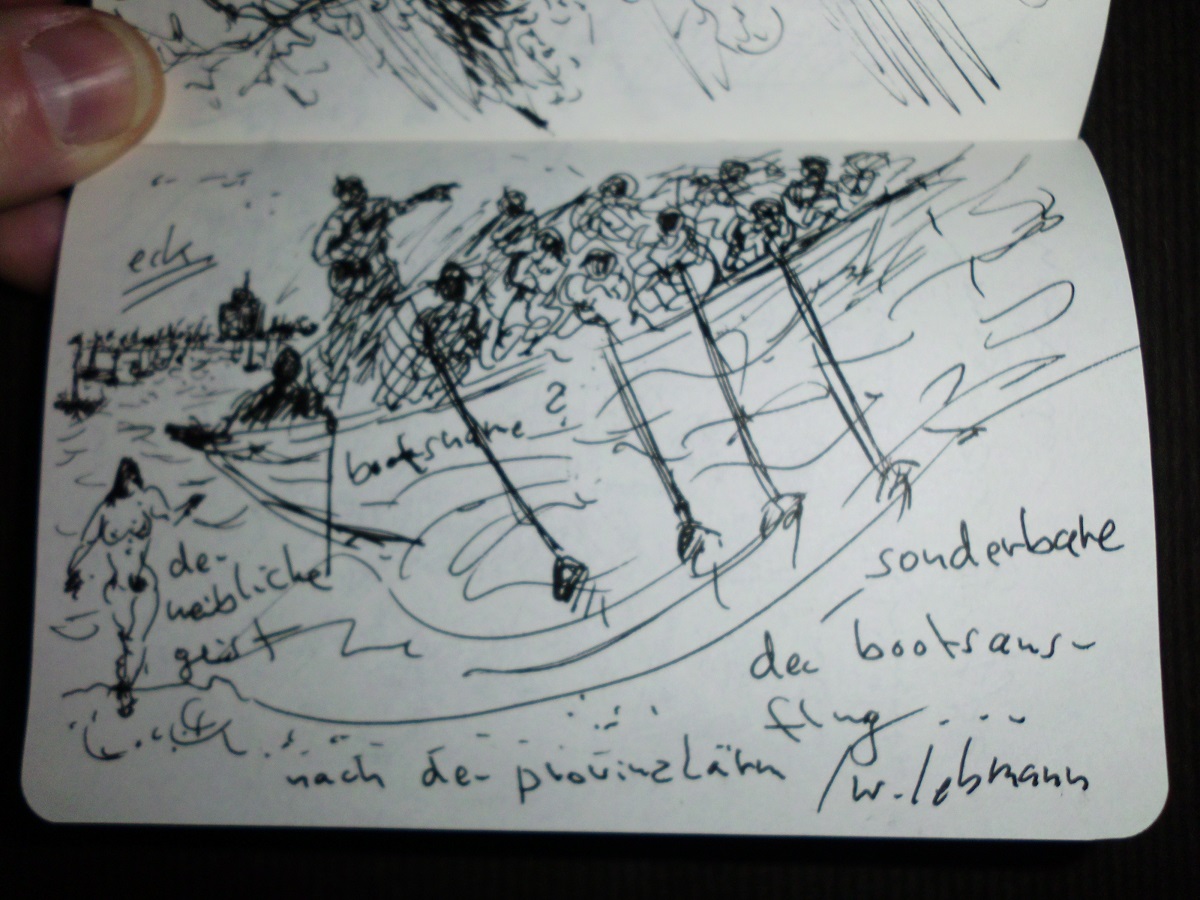 eck
bootshure ?
der
weibliche
geist
sonderbare
der bootsaus-
flug ...
nach der provinzlärm /w. lehmann